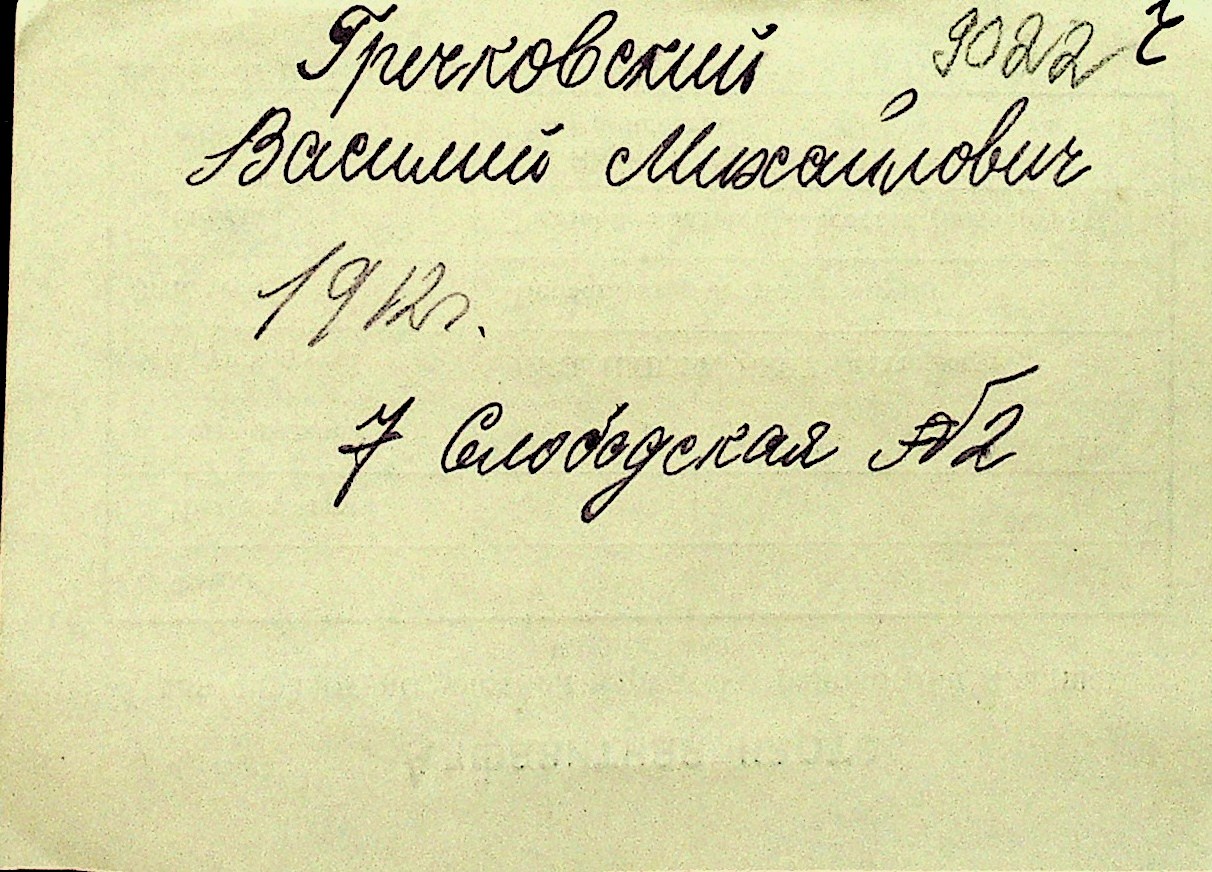 Гречковский 9022 г
Василий Михайлович
1912г.
7 Слободская №2